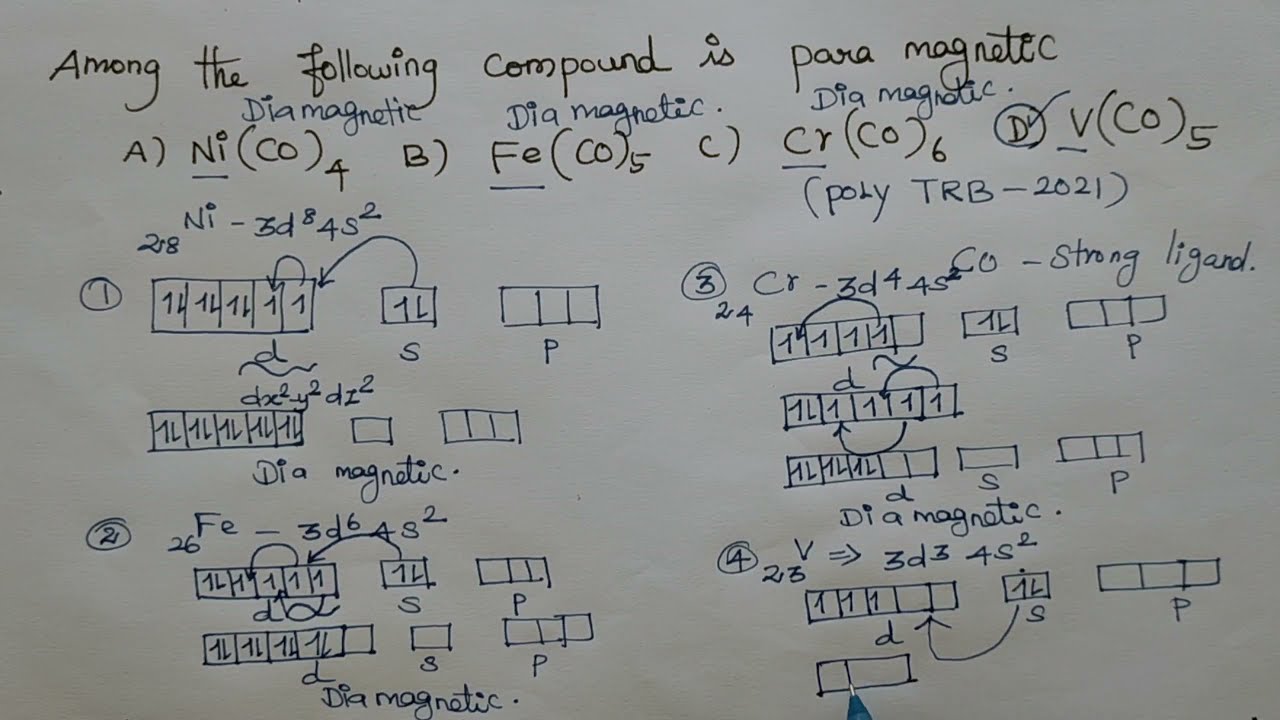 Among the following compound is para magnetic
Diamagnetic Dia magnetic. Dia magnetic.
A) Ni(CO)4 B) Fe(CO)5 C) Cr(CO)6 D) V(CO)5
(poly TRB-2021)
28Ni - 3d8 4s2
① 1L 1L 1L 1 1 1L
d S P
dx2-y2 dz2
1L 1L 1L 1L 1L
Dia magnetic.
② 26Fe - 3d6 4s2
1L 1 1 1 1 1L
d S P
1L 1L 1L 1L
d S P
Dia magnetic.
CO - Strong ligand.
③ 24Cr - 3d4 4s2
1 1 1 1 1L
d S P
1L 1 1 1 1
1L 1L 1L
d S P
Dia magnetic.
④ 23V ⇒ 3d3 4s2
1 1 1 1L
d S P